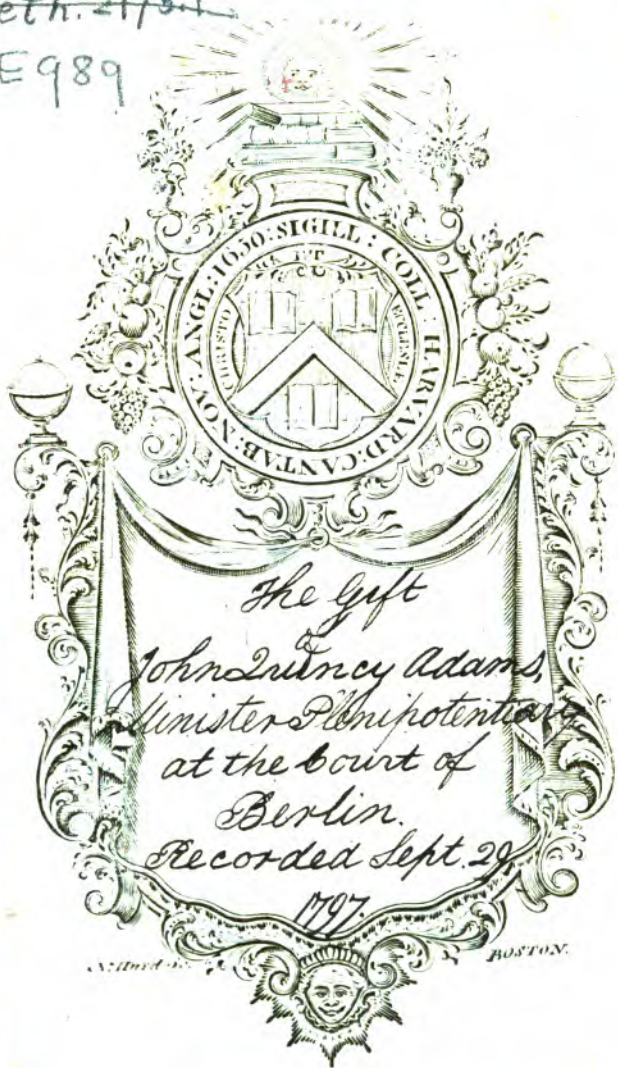 E989
SIGILL : COLL : HARVARD : CANTAB : NOV : ANGL : 1650 :
CHRISTO
ET
ECCLESIÆ
The Gift
of
John Quincy Adams,
Minister Plenipotentiary
at the Court of
Berlin.
Recorded Sept. 29
1797.
N. Hurd
BOSTON.